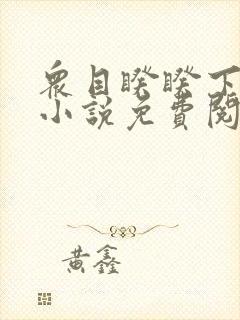 衆目睽睽下
小說免費閱
黃鑫